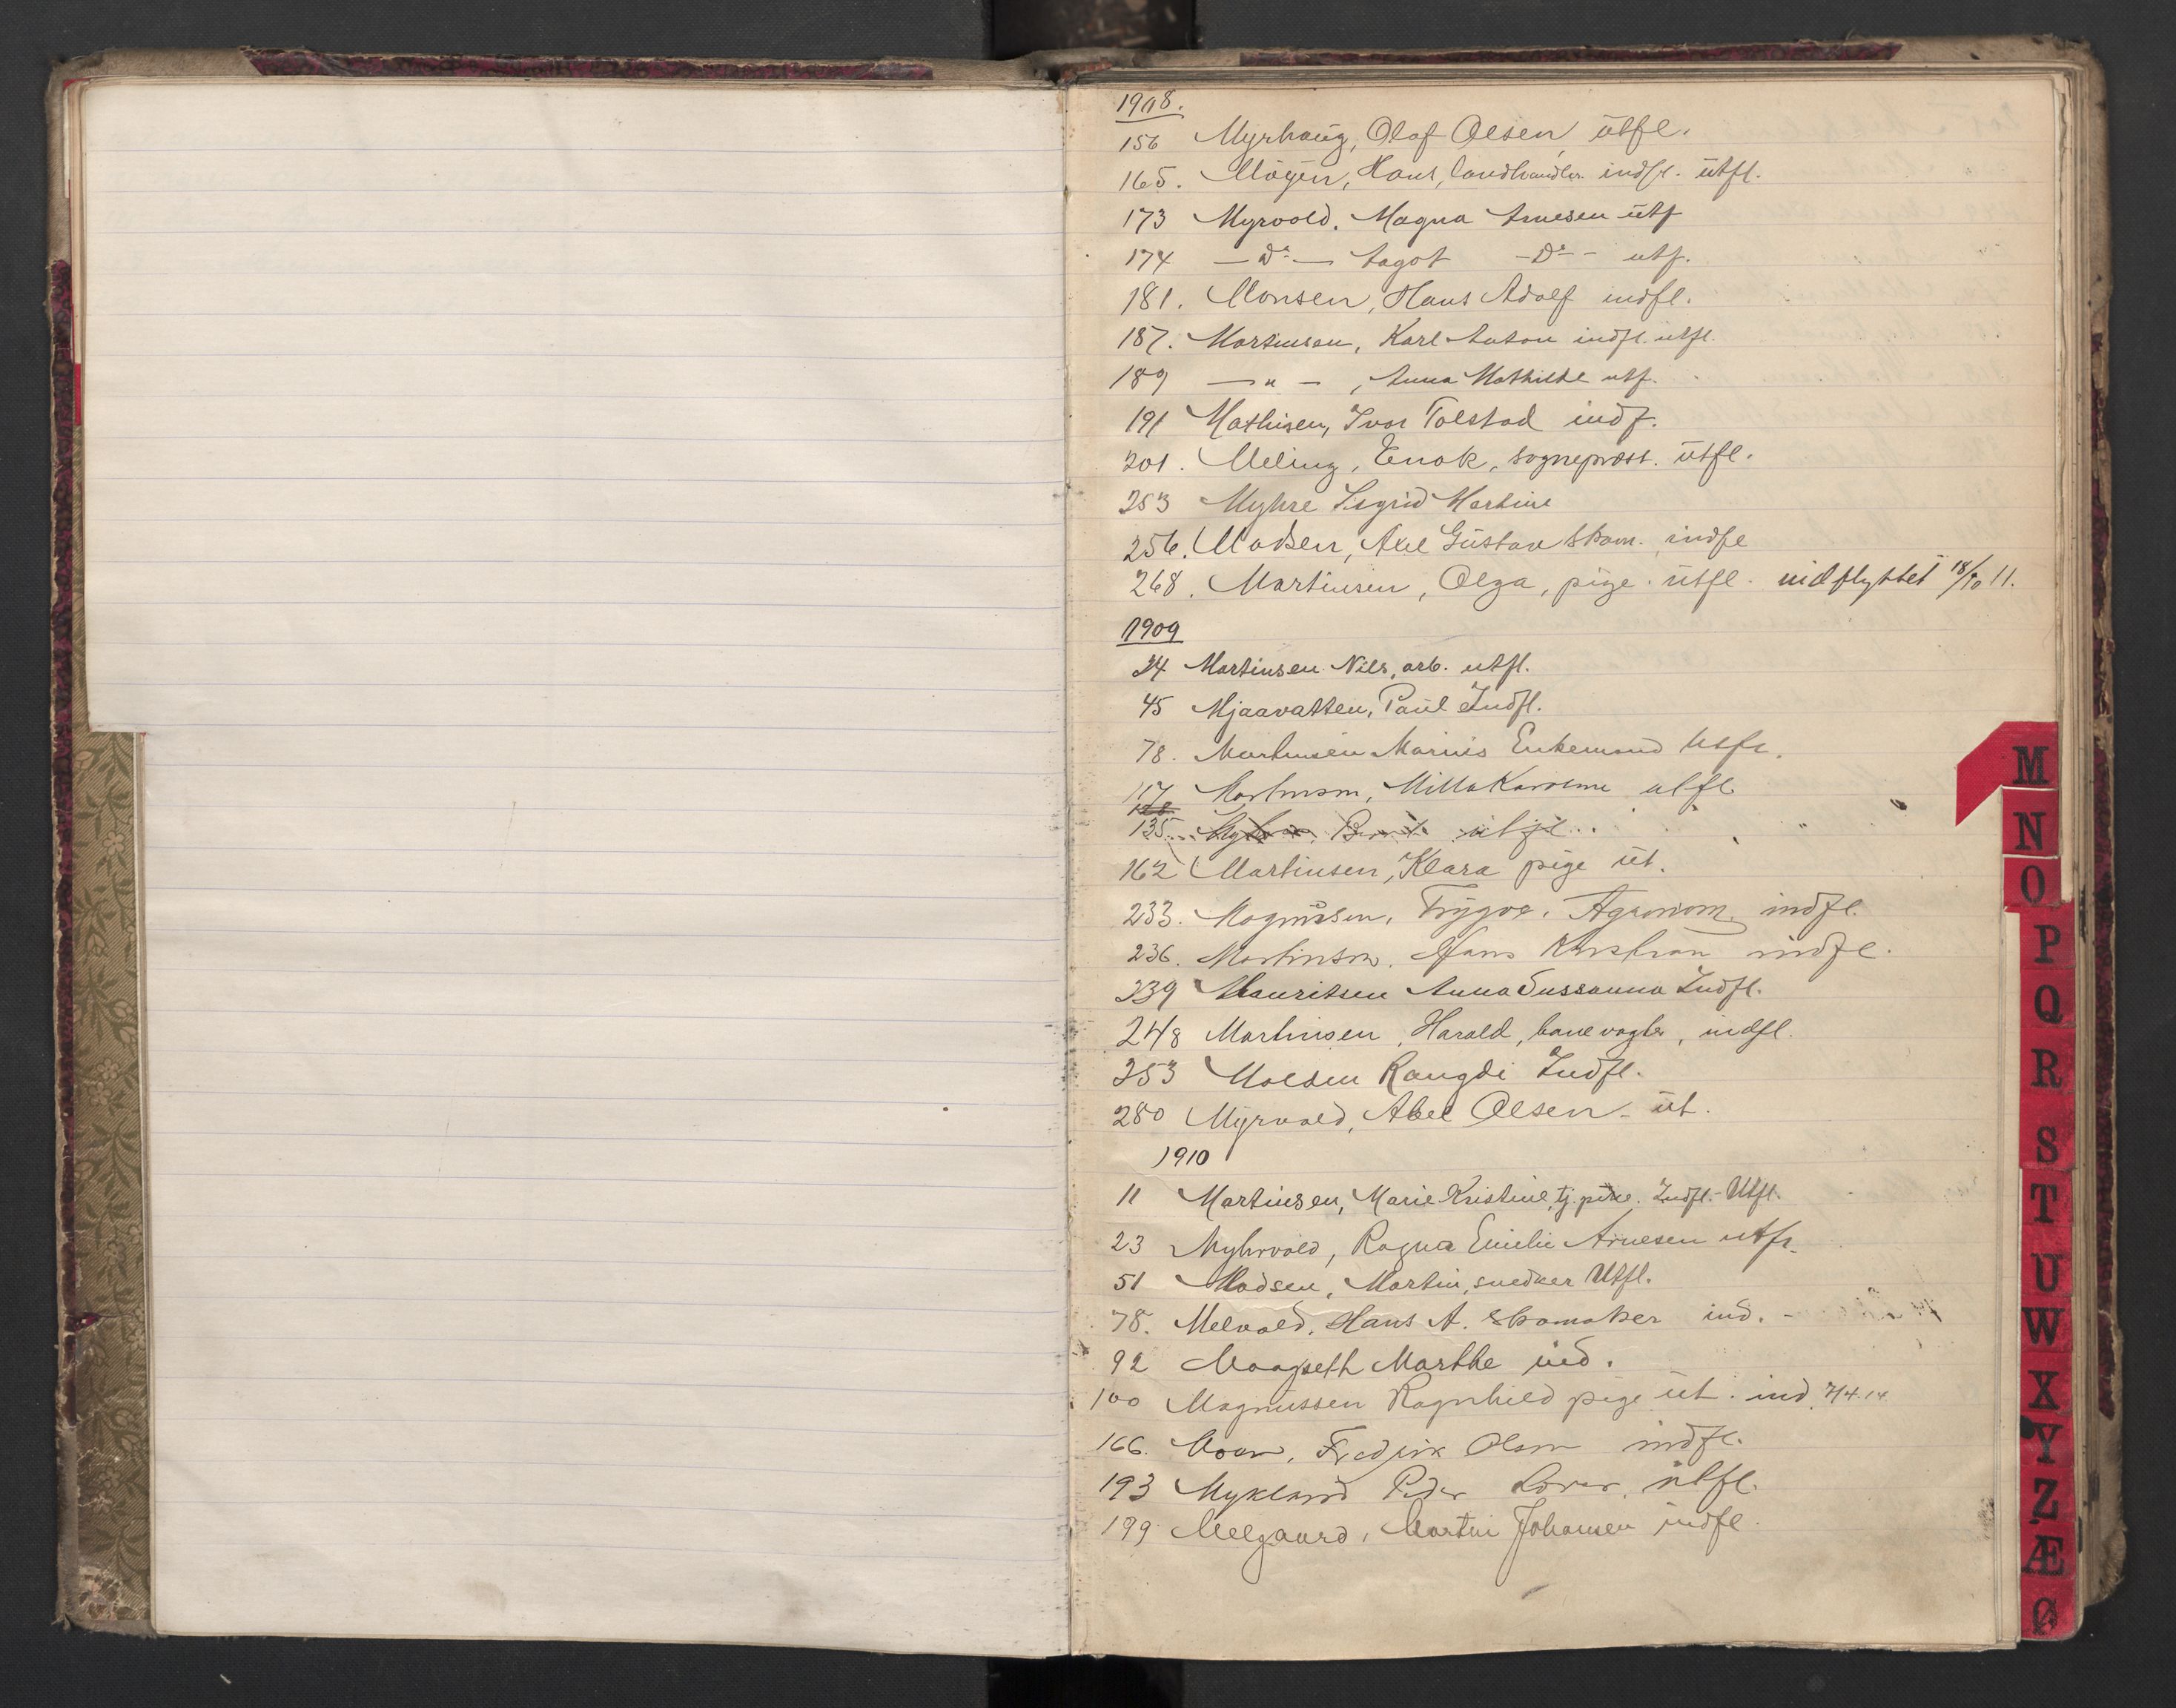 1908.
156 Myrhaug, Olaf Olsen utfl.
165. Mögen, Hans, landhandler indfl. utfl.
173 Myrvold, Magna Arnesen utf
174 — Do — Aagot - Do - utf.
181. Monsen, Hans Adolf indfl.
187. Martinsen, Karl Anton indfl. utfl.
189 — " — , Anna Mathilde utf.
191 Mathisen, Ivar Tolstad indf.
201. Meling, Enok, sogneprest. utfl.
253 Myhre Sigrid Martine
256. Madsen, Axel Gustav skom. indfl
268. Martinsen, Olga, pige. utfl. indflyttet 18/10 11.
1909
24 Martinsen Nils, arb. utfl.
45 Mjaavatten, Paul Indfl.
78. Martinsen Marius Enkemand Utfl.
117 Martinsen, Milla Karoline utfl
135 utfl.
162 Martinsen, Klara pige ut.
233. Magnussen, Trygve, Agronom, indfl.
236. Martinsen, Hans Kristian indfl.
239 Mauritsen Anna Sussanna Indfl.
248 Martinsen, Harald, banevogter, indfl.
253 Molden Rangdi Indfl.
280 Myrvold, Abel Olsen - ut.
1910
11 Martinsen, Marie Kristine, tj.pike. Indfl. - Utfl.
23 Myhrvold, Ragna Emilie Arnesen utfl.
51 Madsen, Martin, snedker Utfl.
78. Melvold, Hans A. Skomaker ind. -
92 Marthe ind.
100 Magnussen Ragnhild pige ut. ind. 7/4.14
166. Moan, Fredrik Olsen indfl.
193 Mykland Peder utfl.
199 Melgaard, Martin Johansen indfl.
M
N
O
P
Q
R
S
T
U
W
X
Y
Z
Æ
Ø